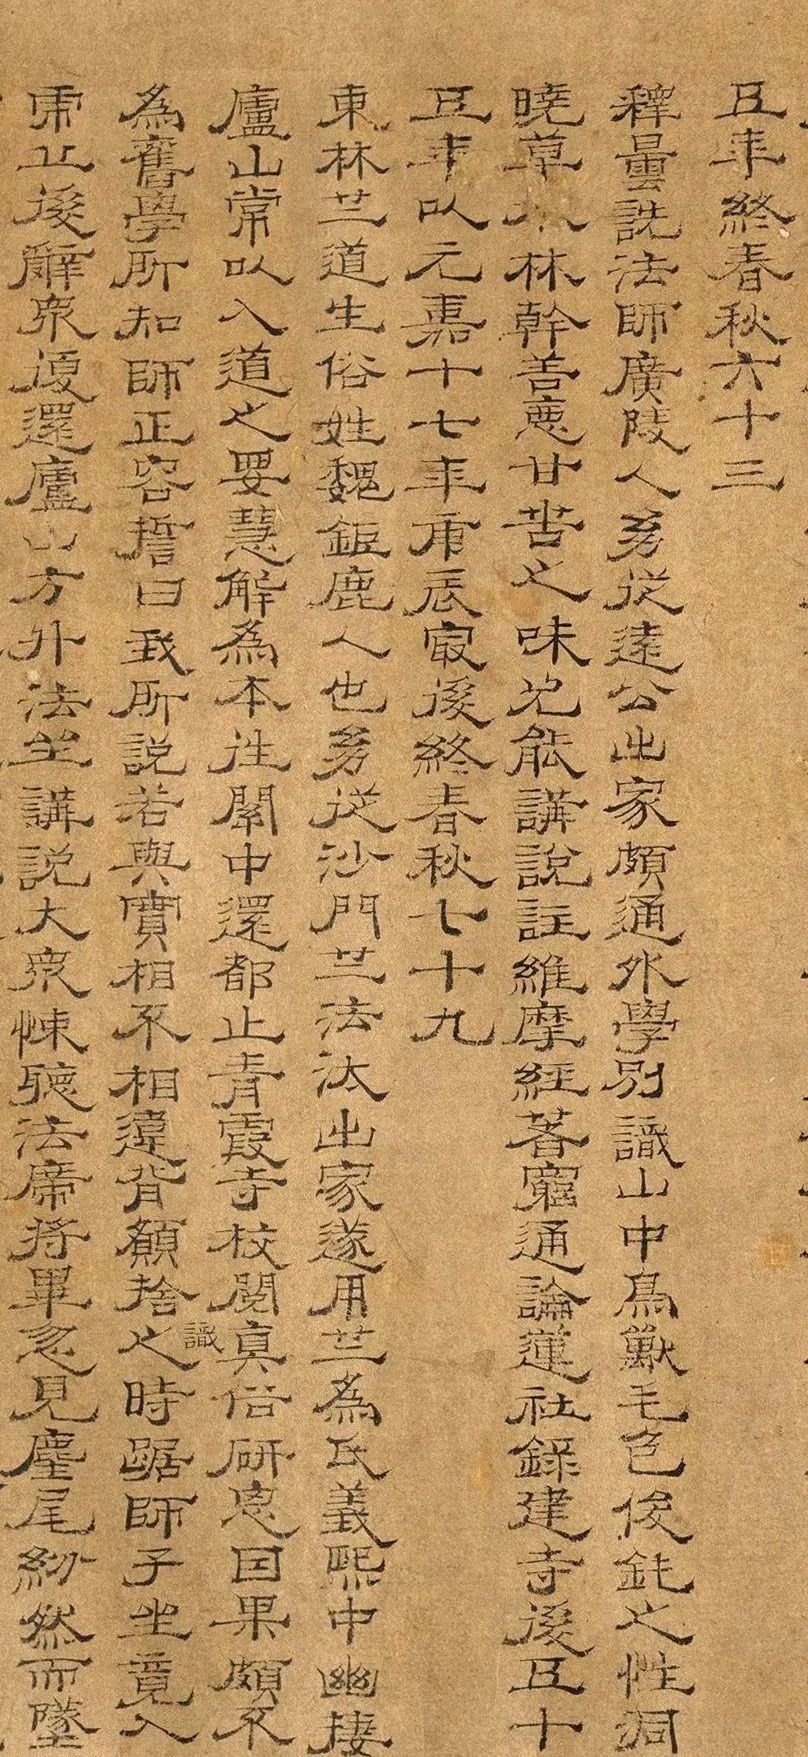 五年終春秋六十三
釋曇詵法師廣陵人㓜從遠公出家頗通外學別識山中鳥獸毛色俊鈍之性洞
曉草木林幹善惡甘苦之味尤能講說註維摩經著窮通論蓮社錄建寺後五十
五年以元嘉十七年庚辰寂後終春秋七十九
東林竺道生俗姓魏鉅鹿人也㓜從沙門竺法汰出家遂用竺為氏義熙中幽棲
廬山常以入道之要慧解為本往關中還都止青霞寺校閱真俗研思因果頗不
為舊學所知師正容誓曰我所説若與實相不相違背願捨之時踞師子坐竟入
識
虎丘後辭衆復還廬山方外法坐講説大衆悚聽法席將畢忽見麈尾紛然而墜